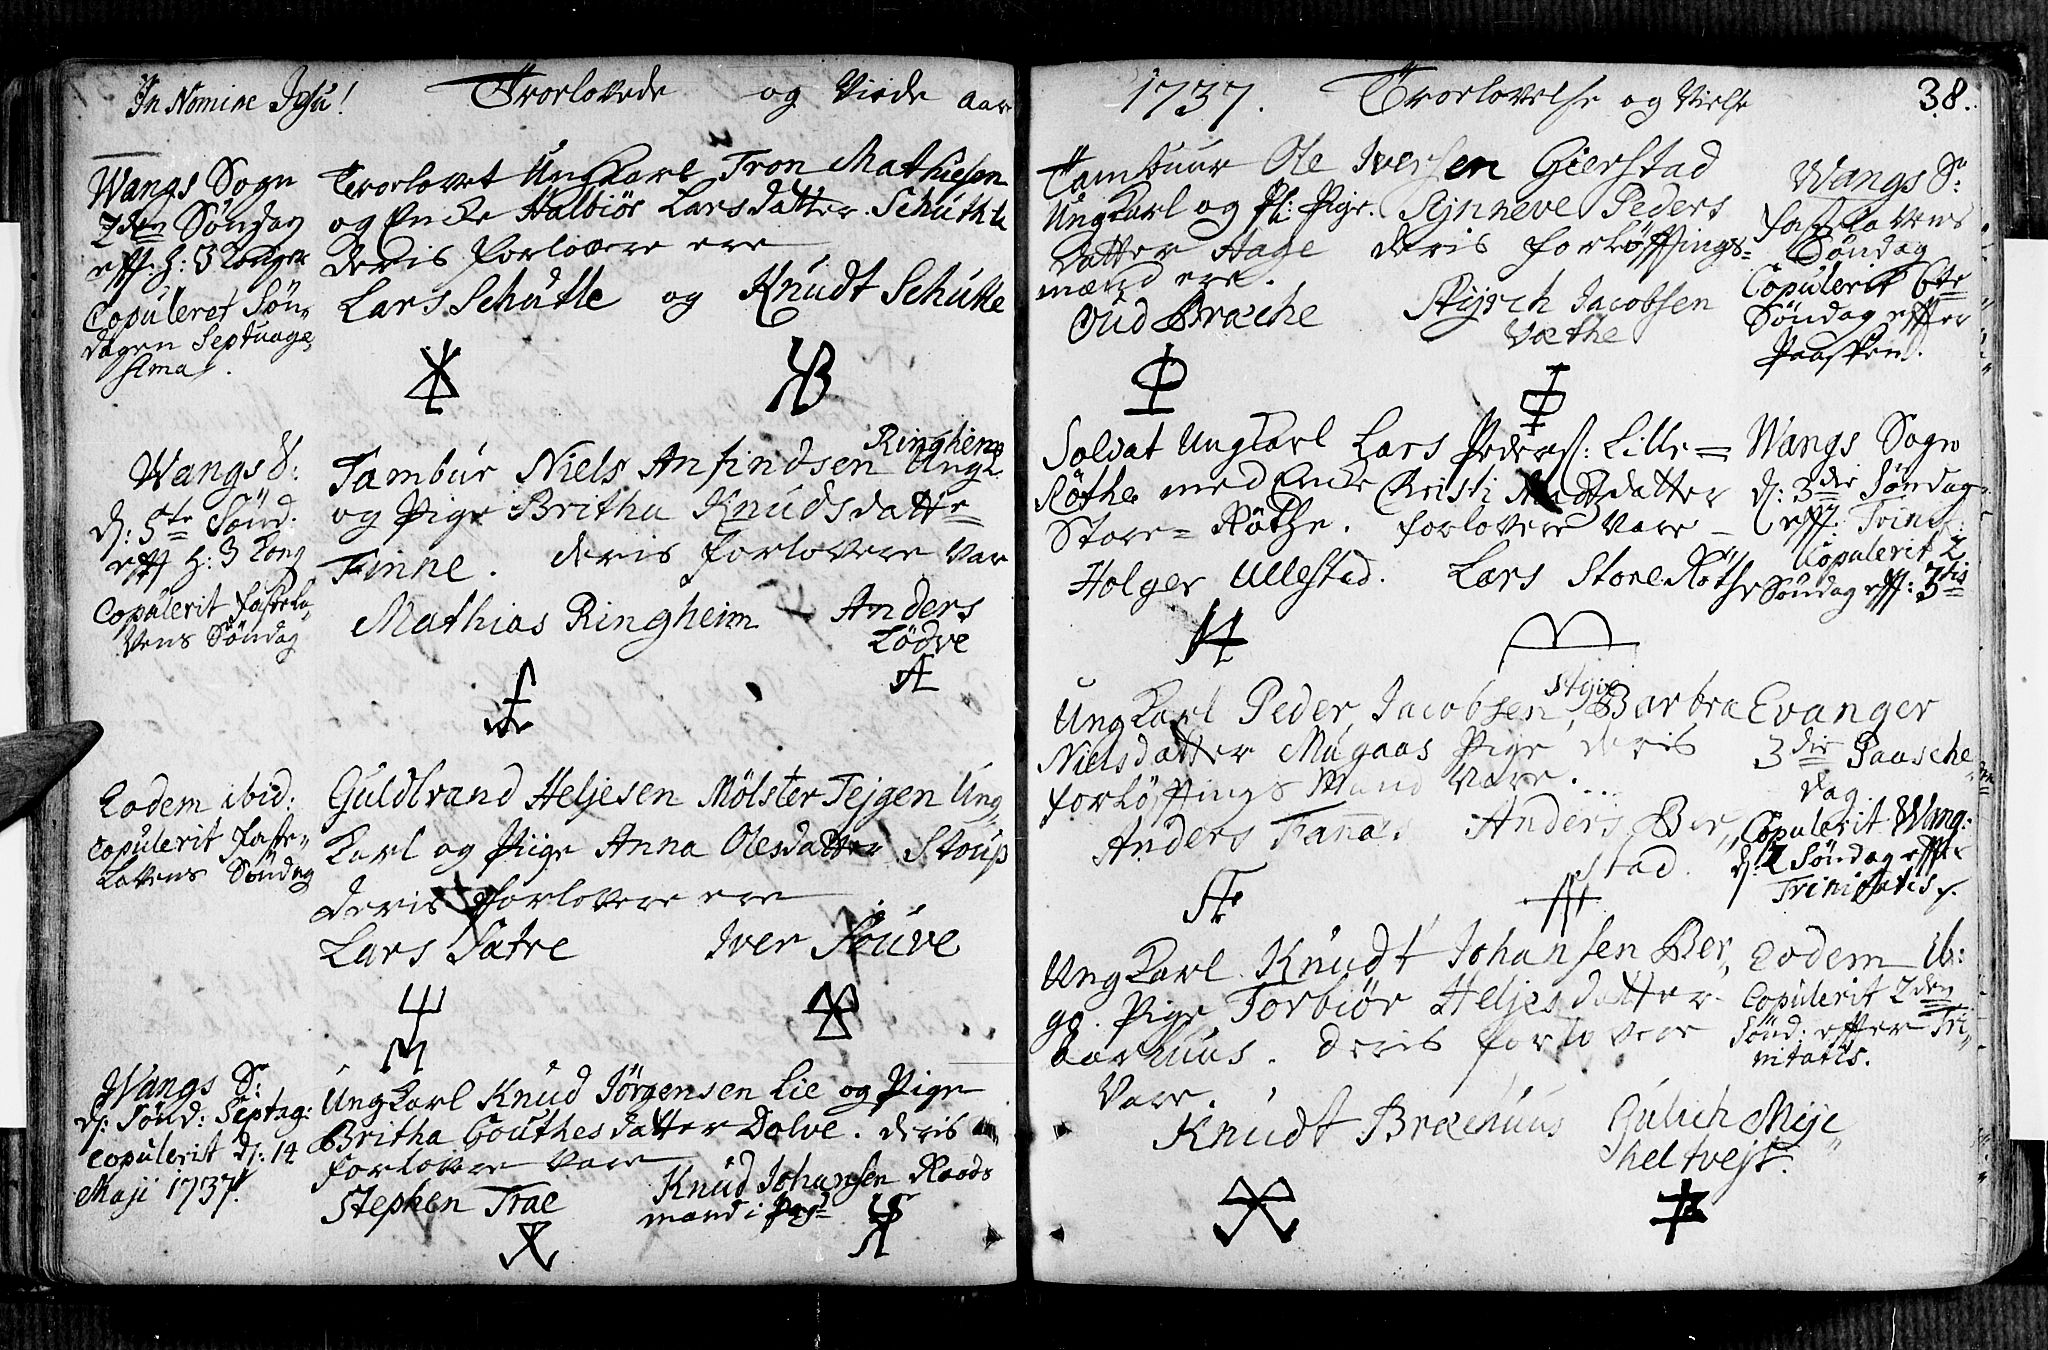 In Nomine Jesu! Troelovede og Viede aar
Wangs Sogn
2den Søndag
eft: H: 3 Konger
Copuleret Søn,
dagen Septuage,
sima.
Troelovet Ungkarl Tron Mathiesen
og Encke Halbiør Larsdatter Schutle
deris forlovere ere
Lars Schutle og Knudt Schutle
Wangs S:
d: 5te Sønd.
eft H: 3 Kong
Copulerit faste„
lavens Søndag
Ringheim
Tambur Niels Anfindsen Ungk
og Pige Britha Knudsdatte=
Finne. deris forlovere var
Mathias Ringheim Anders
Lødve
Eodem ibid:
Copulerit faste„
lavens Søndag
Guldbrand Heljesen Mølster Tejgen Ung„
karl og Piige Anna Olesdatter Stoup
deris forlovere ere
Lars Sætre Iver Souve
Wangs S:
d: Sønd: Septag:
copulerit d: 14
Maji 1737.
Ungkarl Knud Jørgensen Lie og Pige
Britha Gouthesdatter Dolve. deris
forlovere vare
Stephen Træ Knud Johansen Raads
mand i
1737. Troelovelse og Vielse 38.
Tambuur Ole Iversen Gierstad
Ungkarl og Pl: Pige. Synneve Peders
datter Hage deris forløftings=
mænd ere.
Oud Bræche Styrch Jacobsen
Væthe
Wangs S:
fastelavens
Søndag
Copulerit 6te
Søndag efter
Paasken.
Soldat Ungkarl Lars Peders: Lille=
Røthe med Encke Christi datter
Store=Røthe. forlovere vare
Holger Ullestad. Lars Store Røthe
Wangs Sogn
d: 3die Søndag
eft. Trinit:
Copulerit 2
Søndag eft: 3tis
Styve
Ungkarl Peder Jacobsen, Barbra
Nielsdatter Mugaas Pige deris
forløftings Mænd vare.
Anders Fannes Anders Ber„
stad.
Evanger
3die Paasche„
dag
Copulerit Wang:
d: 2 Søndag efter
Trinitatis.
Ungkarl Knudt Johansen Ber„
ge. Pige Torbiør Heljesdatter
Aarhuus. deris forlovere
vare.
Knudt Bræchuus Gulich Mije„
Skeltvejt.
Eodem ib:
Copulerit 2den
Sønd: efter Tri„
nitatis.